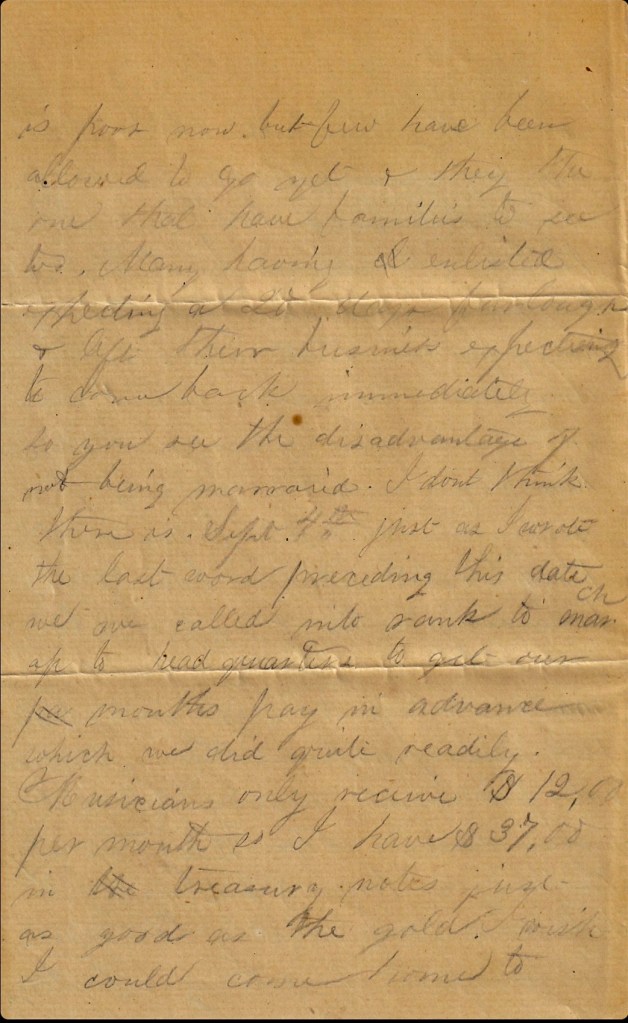 is poor now. but few have been
allowed to go yet & they the
one that have families to see
to. Many having enlisted
expecting a 20 days furlough
& left their business expecting
to come back immediately.
so you see the disadvantage of
not being marraied. I dont think
there is. Sept. 4th just as I wrote
the last word preceding this date
we we called into rank to march
up to head quarters to get our
months pay in advance
which we did quite readily.
Musicians only receive $12,00
per month so I have $37,00
in the treasury notes just
as good as the gold. I wish
I could come home to